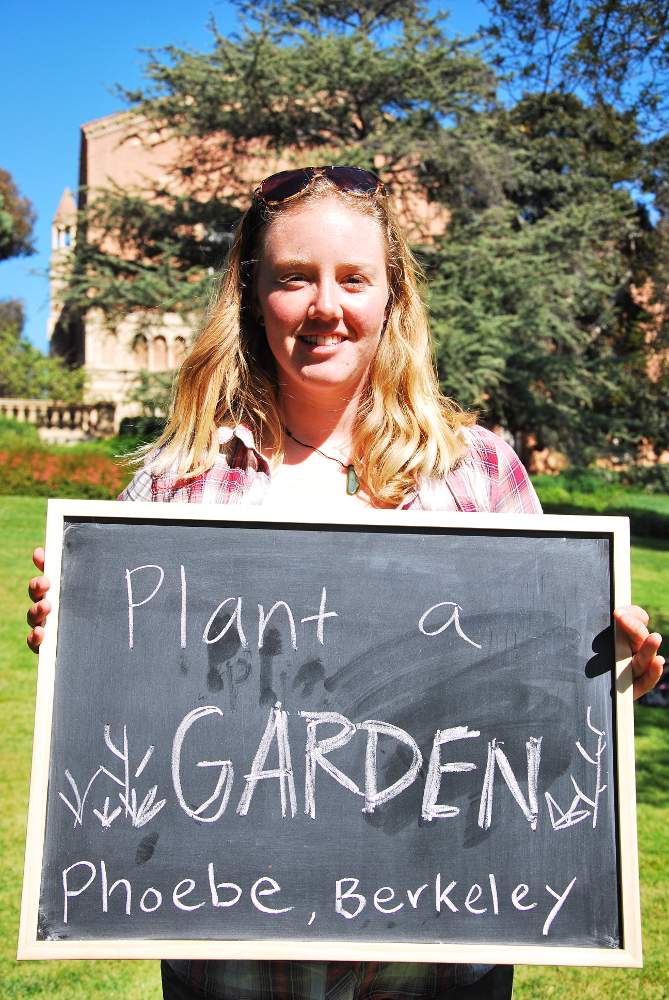 Plant a
GARDEN
Phoebe, Berkeley